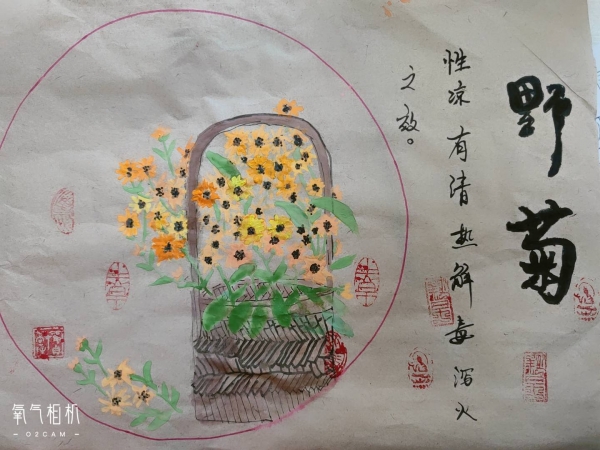 野菊
性凉有清热解毒泻火
之效。
氧气相机
- O2CAM -